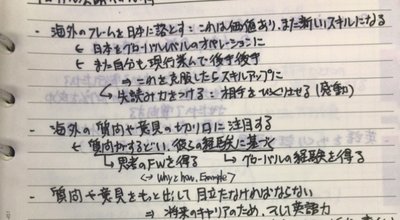 ・海外のフレームを日本に落とす：これは価値あり、また新しいスキルになる
← 日本をグローバルレベルのオペレーションに
← また自分も現行踏んで後手後手
⇒ これを克服したらスキルアップに
↳ 先読み力をつける：相手をびっくりさせる(発動)
・海外の質問や意見の切り口に注目する
← 質問がするどい、彼らの経験に基づく
↳ 思考のFWを得る ↳ グローバルの経験を得る
(← Why, how, Example?)
・質問や意見をもっと出して目立たなければならない
⇒ 将来のキャリアのため、そして英語力